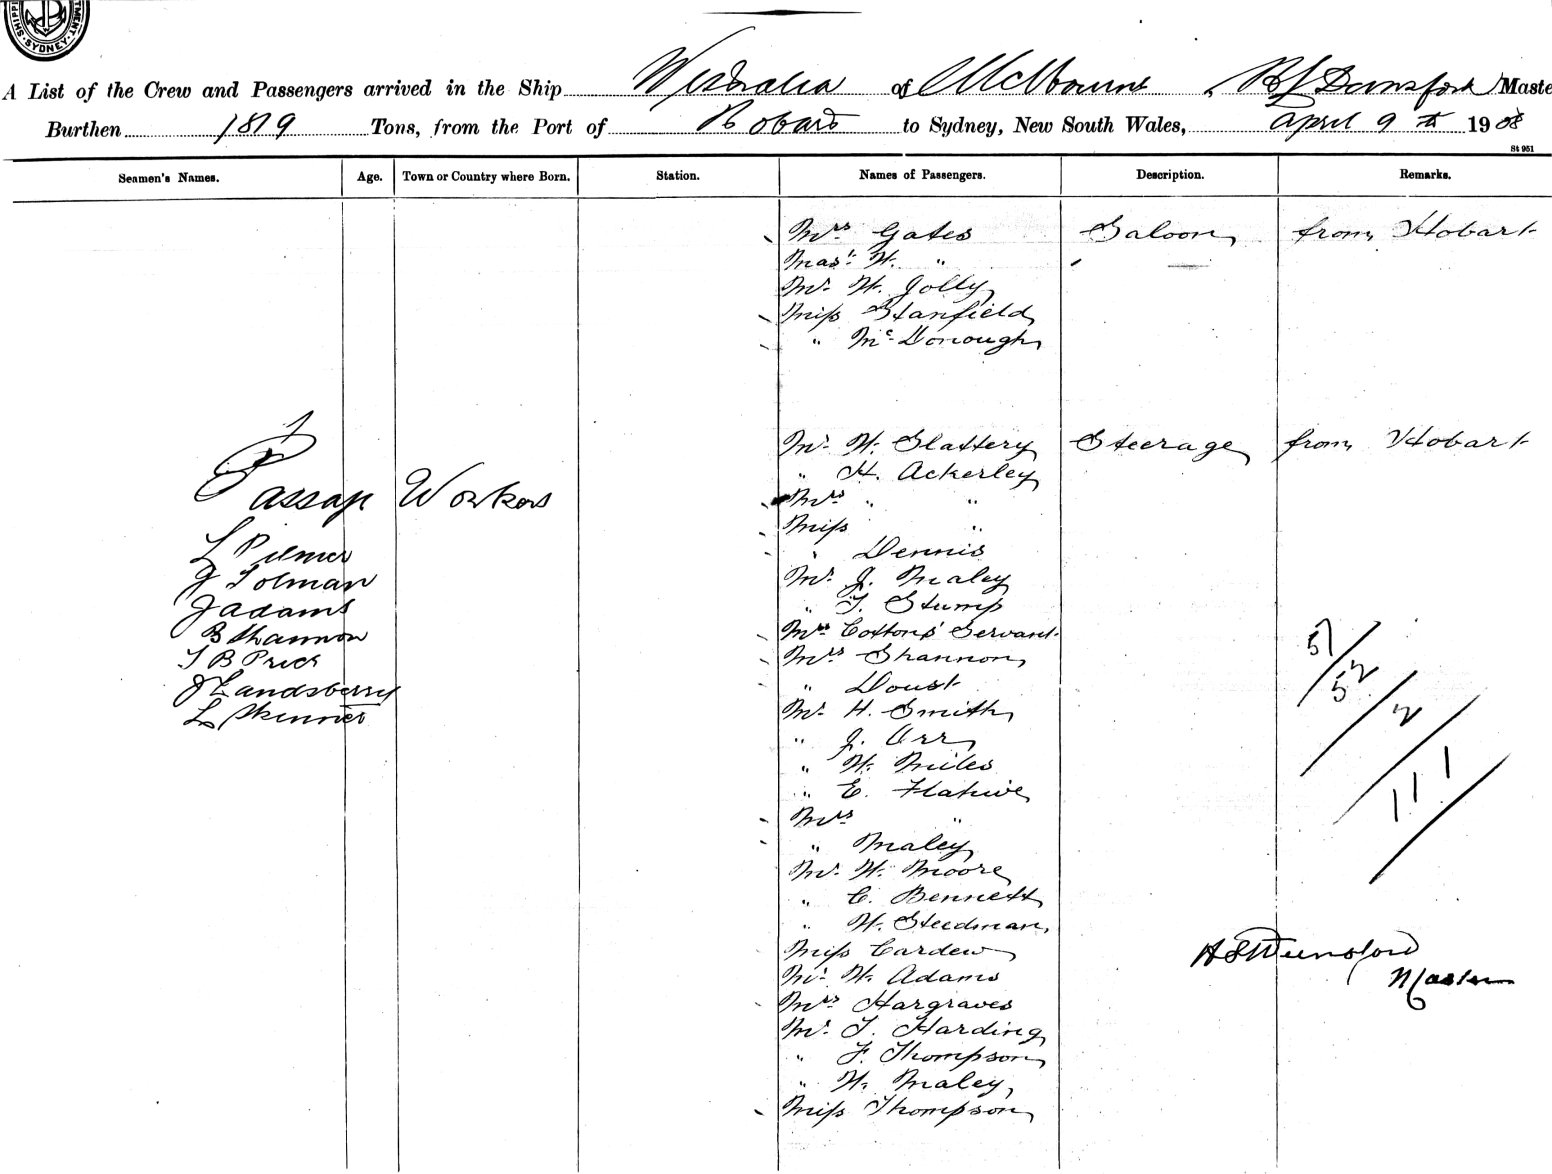 SYDNEY
A List of the Crew and Passengers arrived in the Ship Westralia of Melbourne, Master
Burthen 1819 Tons, from the Port of Hobart to Sydney, New South Wales, April 9th 1908
St 951
Seamen's Names. Age. Town or Country where Born. Station. Names of Passengers. Description. Remarks.
Mrs Gates Saloon from Hobart
Mast. W. "
Mr W. Jolly
Miss Stanfield
" McDonough
Mr W. Slattery Steerage from Hobart
" H. Ackerley
Passage Workers
Mrs " "
Miss "
L Pilmer
" Dennis
J Tolman
Mr J. Maley
J Adams
" T. Stump
B Shannon
Mrs Coxtons' Servant
T B Price
Mrs Shannon
J Landsberry
" Doust
L Skinner
Mr H. Smith
" J. Orr
" W. Miles
" E.
Mrs "
" Maley
Mr W. Moore
" C. Bennett
" W. Steedman
Miss Cardew
Mr W. Adams
Mrs Hargraves
Mr T. Harding
" F. Thompson
" W. Maley
Miss Thompson
57
52
2
111
Master